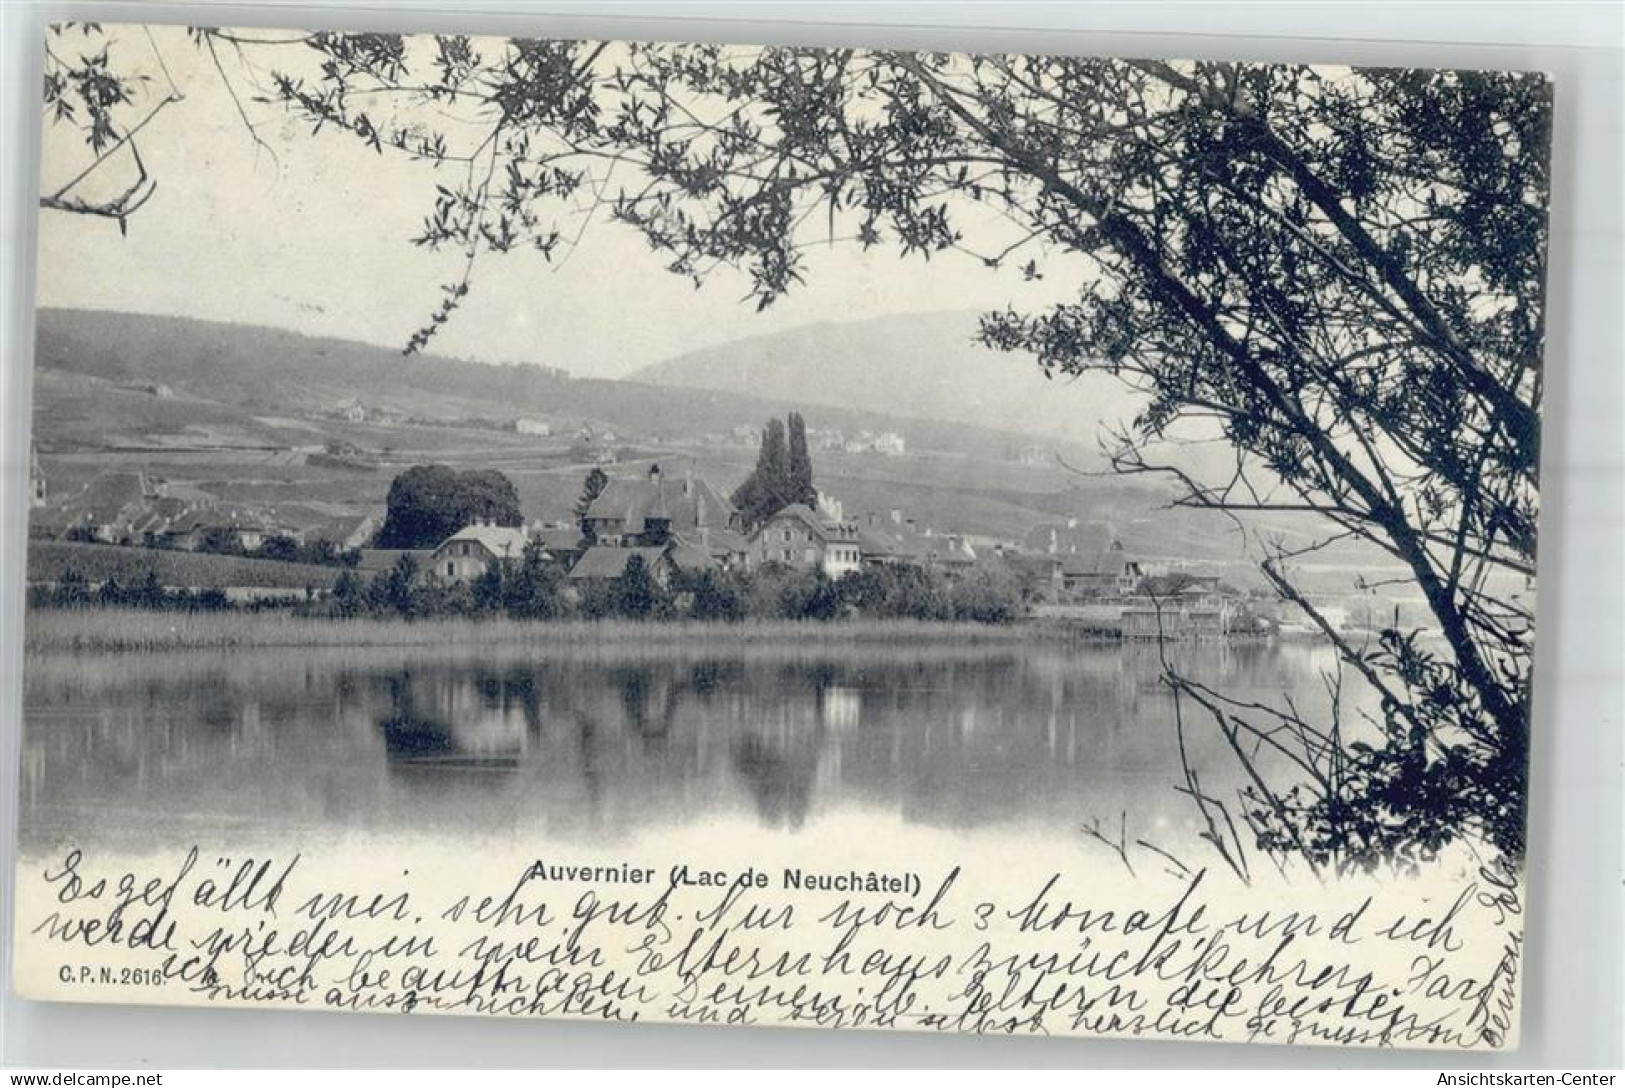 Auvernier (Lac de Neuchâtel)
Es gefällt mir sehr gut. Nur noch 3 Monate und ich
werde wieder in mein Elternhaus zurückkehren. Darf
ich Dich beauftragen Deinen lb. Eltern die besten
Grüsse auszurichten, und sei Du selbst herzlich gegrüsst von
Deiner
C.P.N. 2616.
Ansichtskarten-Center
Copyright delcampe.net ansichtskarten-center